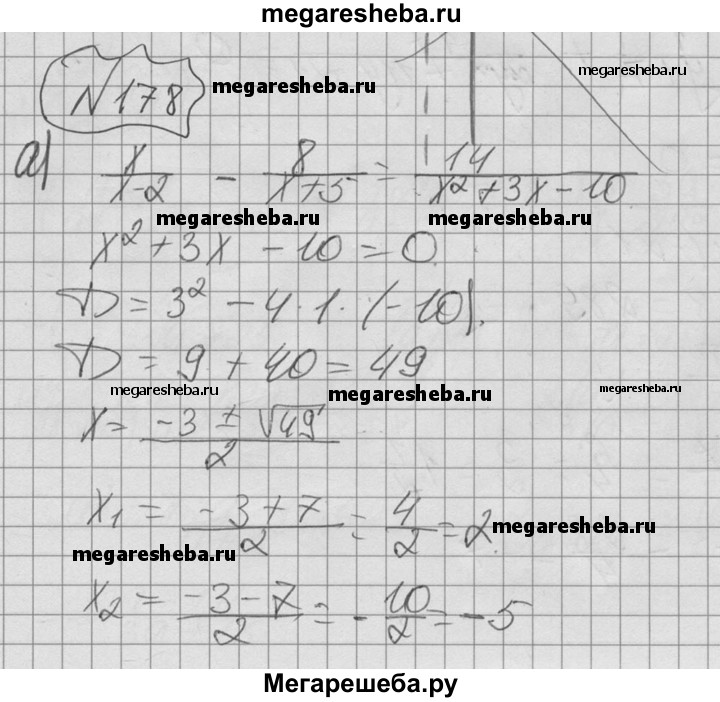 megaresheba.ru
N178
megaresheba.ru
megaresheba.ru
а) x/(x-2) - 8/(x+5) = 14/(x²+3x-10)
megaresheba.ru megaresheba.ru
x²+3x-10=0.
D=3²-4·1·(-10).
D=9+40=49
megaresheba.ru megaresheba.ru megaresheba.ru
x=(-3±√49)/2
x₁=(-3+7)/2=4/2=2
megaresheba.ru
megaresheba.ru
x₂=(-3-7)/2=-10/2=-5
Мегарешеба.ру